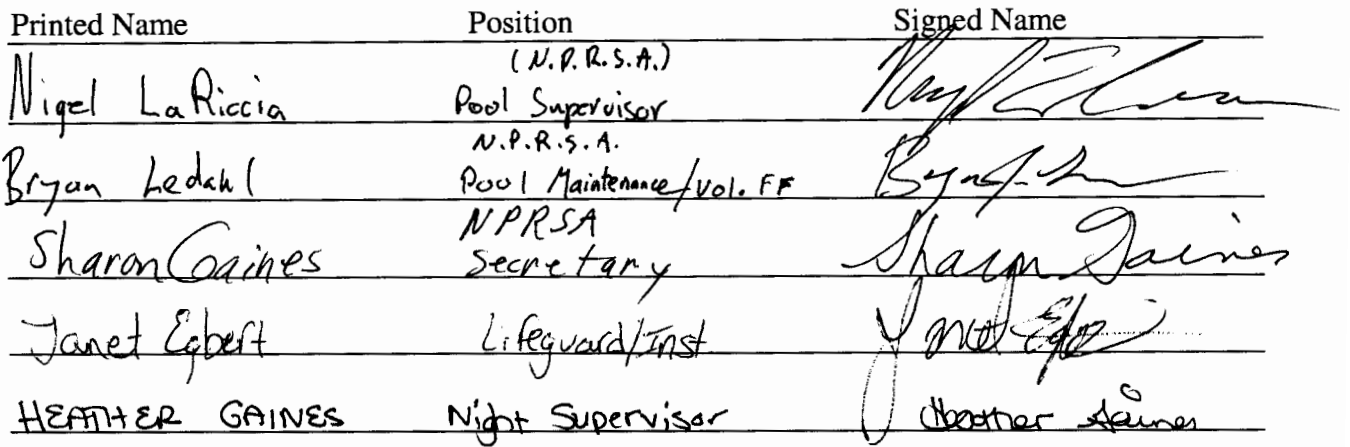 Printed Name Position Signed Name
(N.P.R.S.A.)
Nigel LaRiccia Pool Supervisor
N.P.R.S.A.
Bryan Ledahl Pool Maintenance/vol. FF
NPRSA
Sharon Gaines Secretary Sharon Gaines
Janet Egbert Lifeguard/Inst
HEATHER GAINES Night Supervisor Heather Gaines